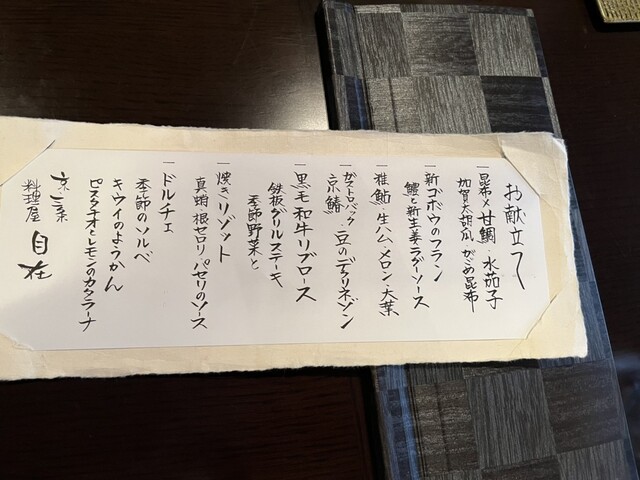 お献立て
一 昆布〆甘鯛・水茄子
加賀太胡瓜 がごめ昆布
一 新ゴボウのフラン
鱧と新生姜ラグーソース
一 稚鮎 生ハム・メロン・大葉
一 ガストロバック 豆のデクリネゾン
京鰆
一 黒毛和牛リブロース
鉄板グリルステーキ
季節野菜と
一 焼きリゾット
真蛸 根セロリ パセリのソース
一 ドルチェ
季節のソルベ
キウイのようかん
ピスタチオとレモンのカタラーナ
料理屋 自在